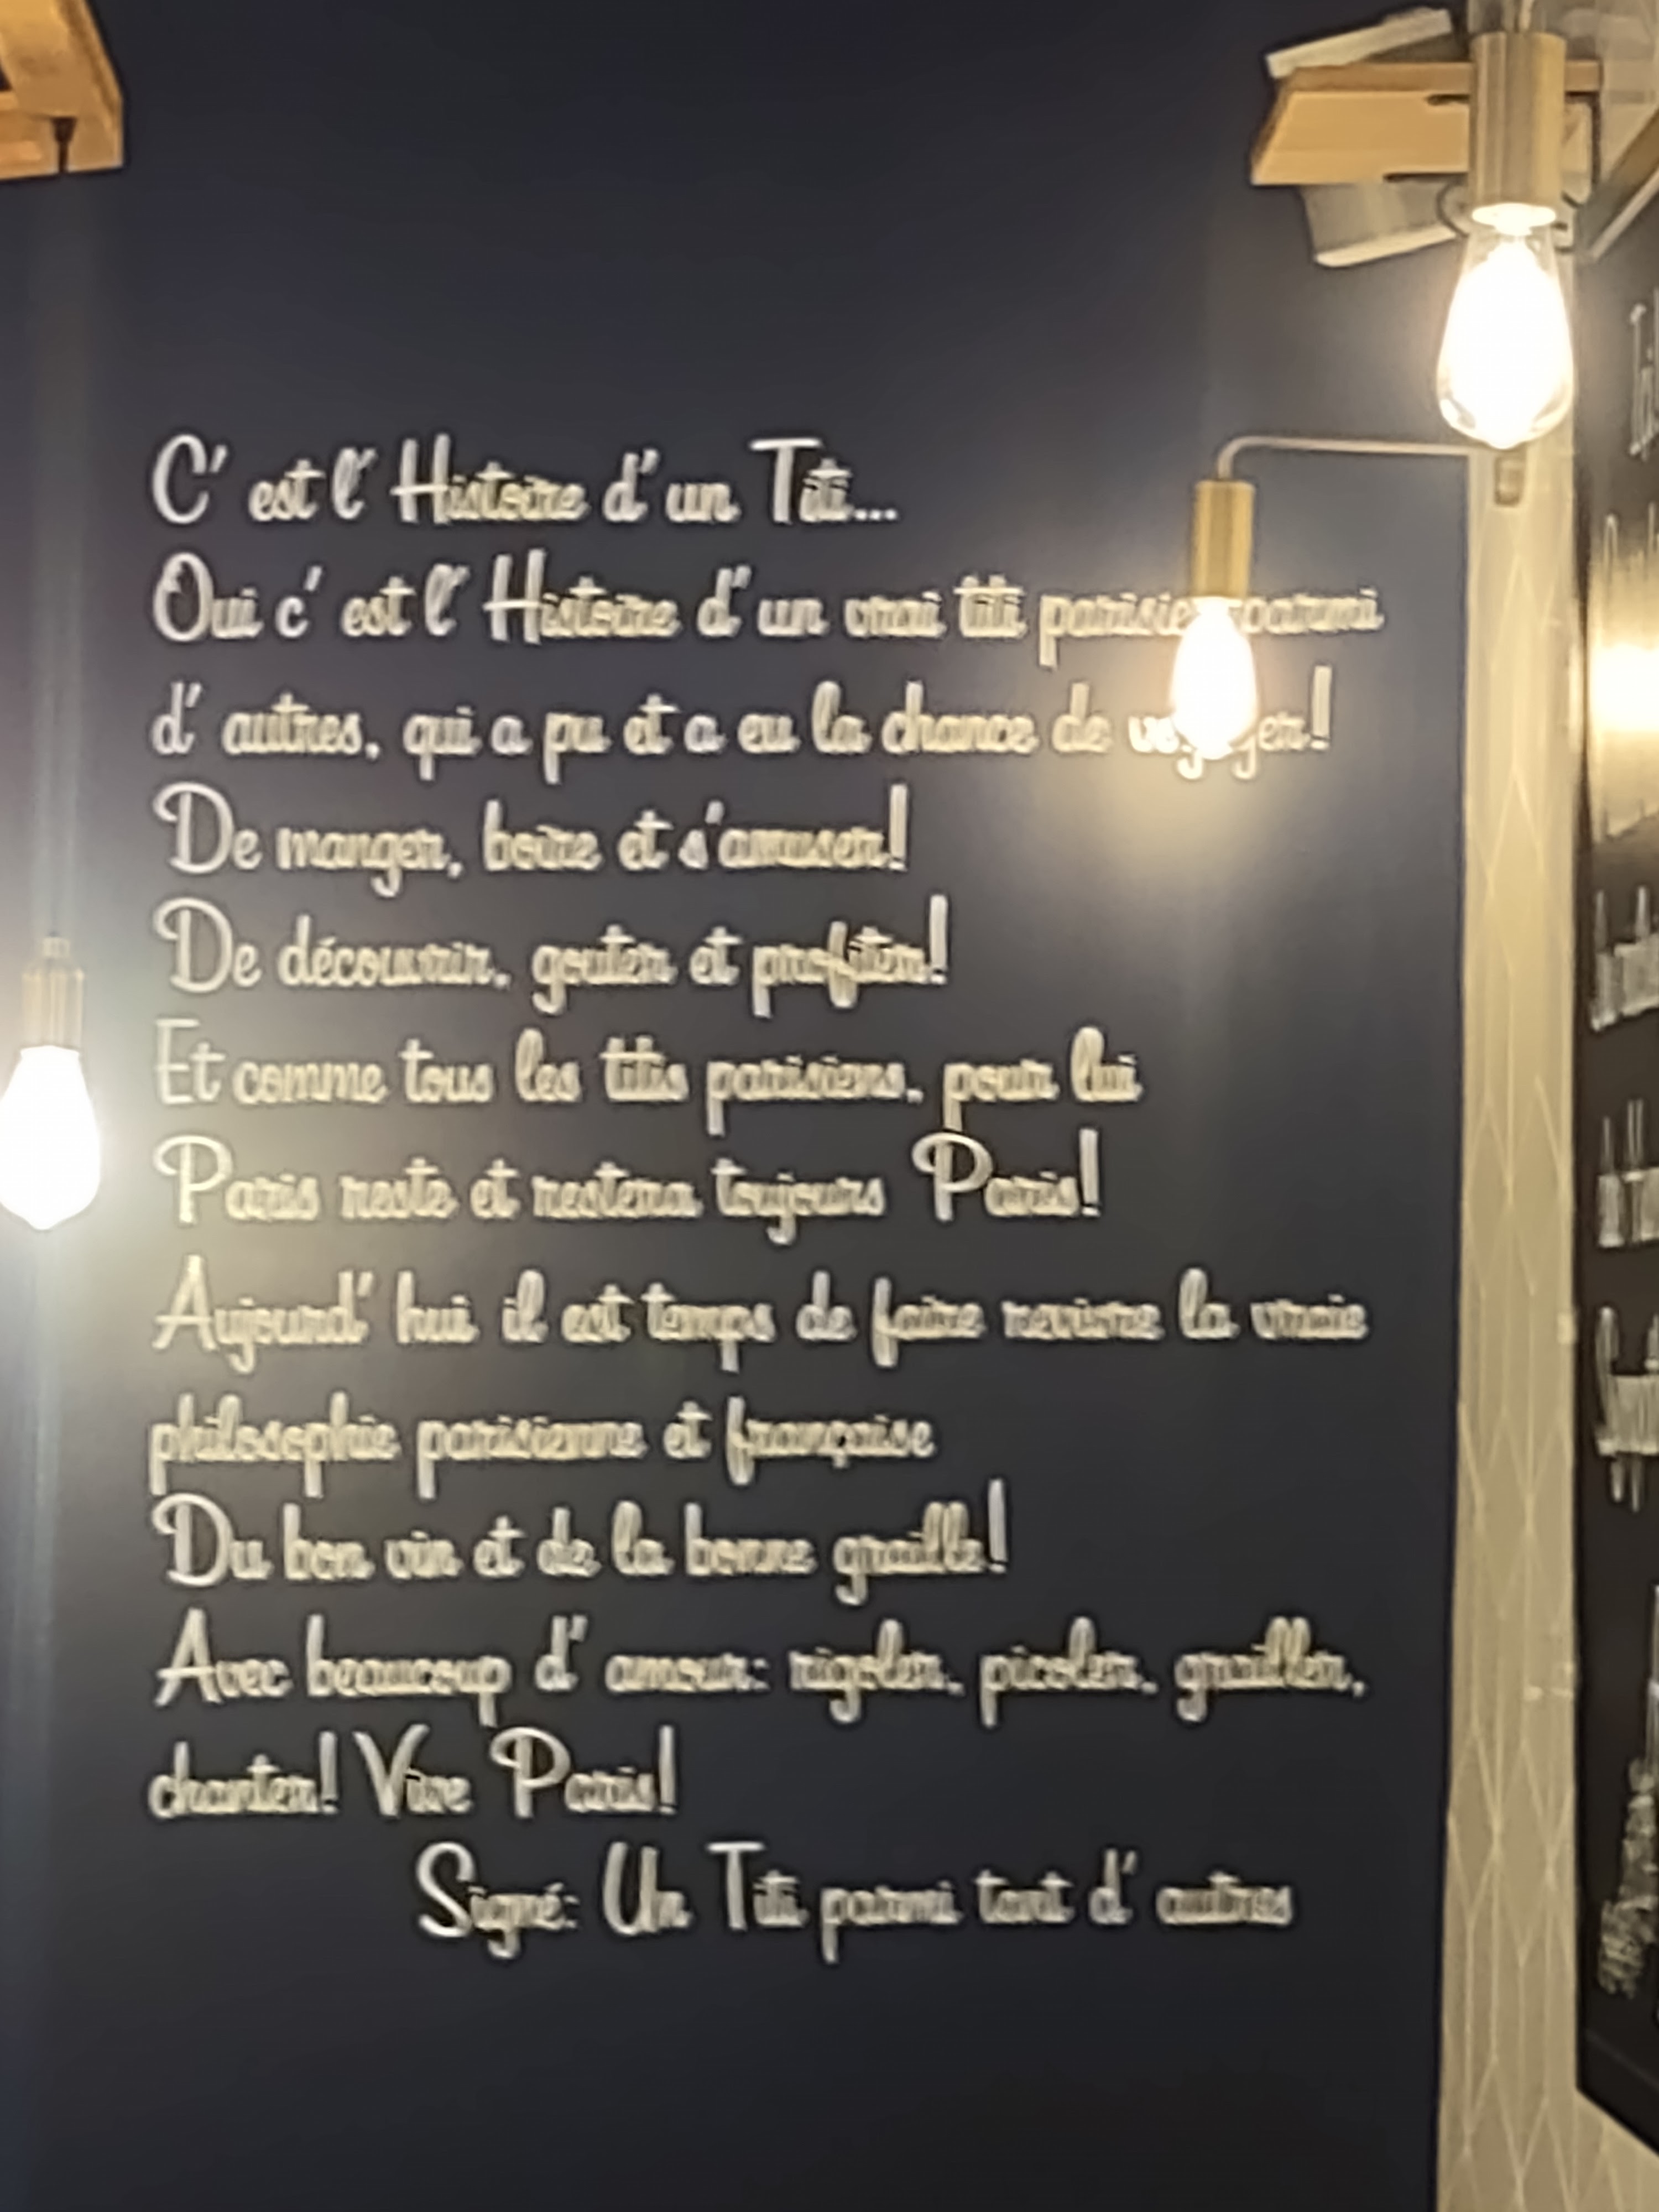 C' est l' Histoire d' un Titi...
Oui c' est l' Histoire d' un vrai titi parisien parmi
d' autres, qui a pu et a eu la chance de voyager!
De manger, boire et s'amuser!
De découvrir, gouter et profiter!
Et comme tous les titis parisiens, pour lui
Paris reste et restera toujours Paris!
Aujourd' hui il est temps de faire revivre la vraie
philosophie parisienne et française
Du bon vin et de la bonne graille!
Avec beaucoup d' amour: rigoler, picoler, grailler,
chanter! Vive Paris!
Signé: Un Titi parmi tant d' autres